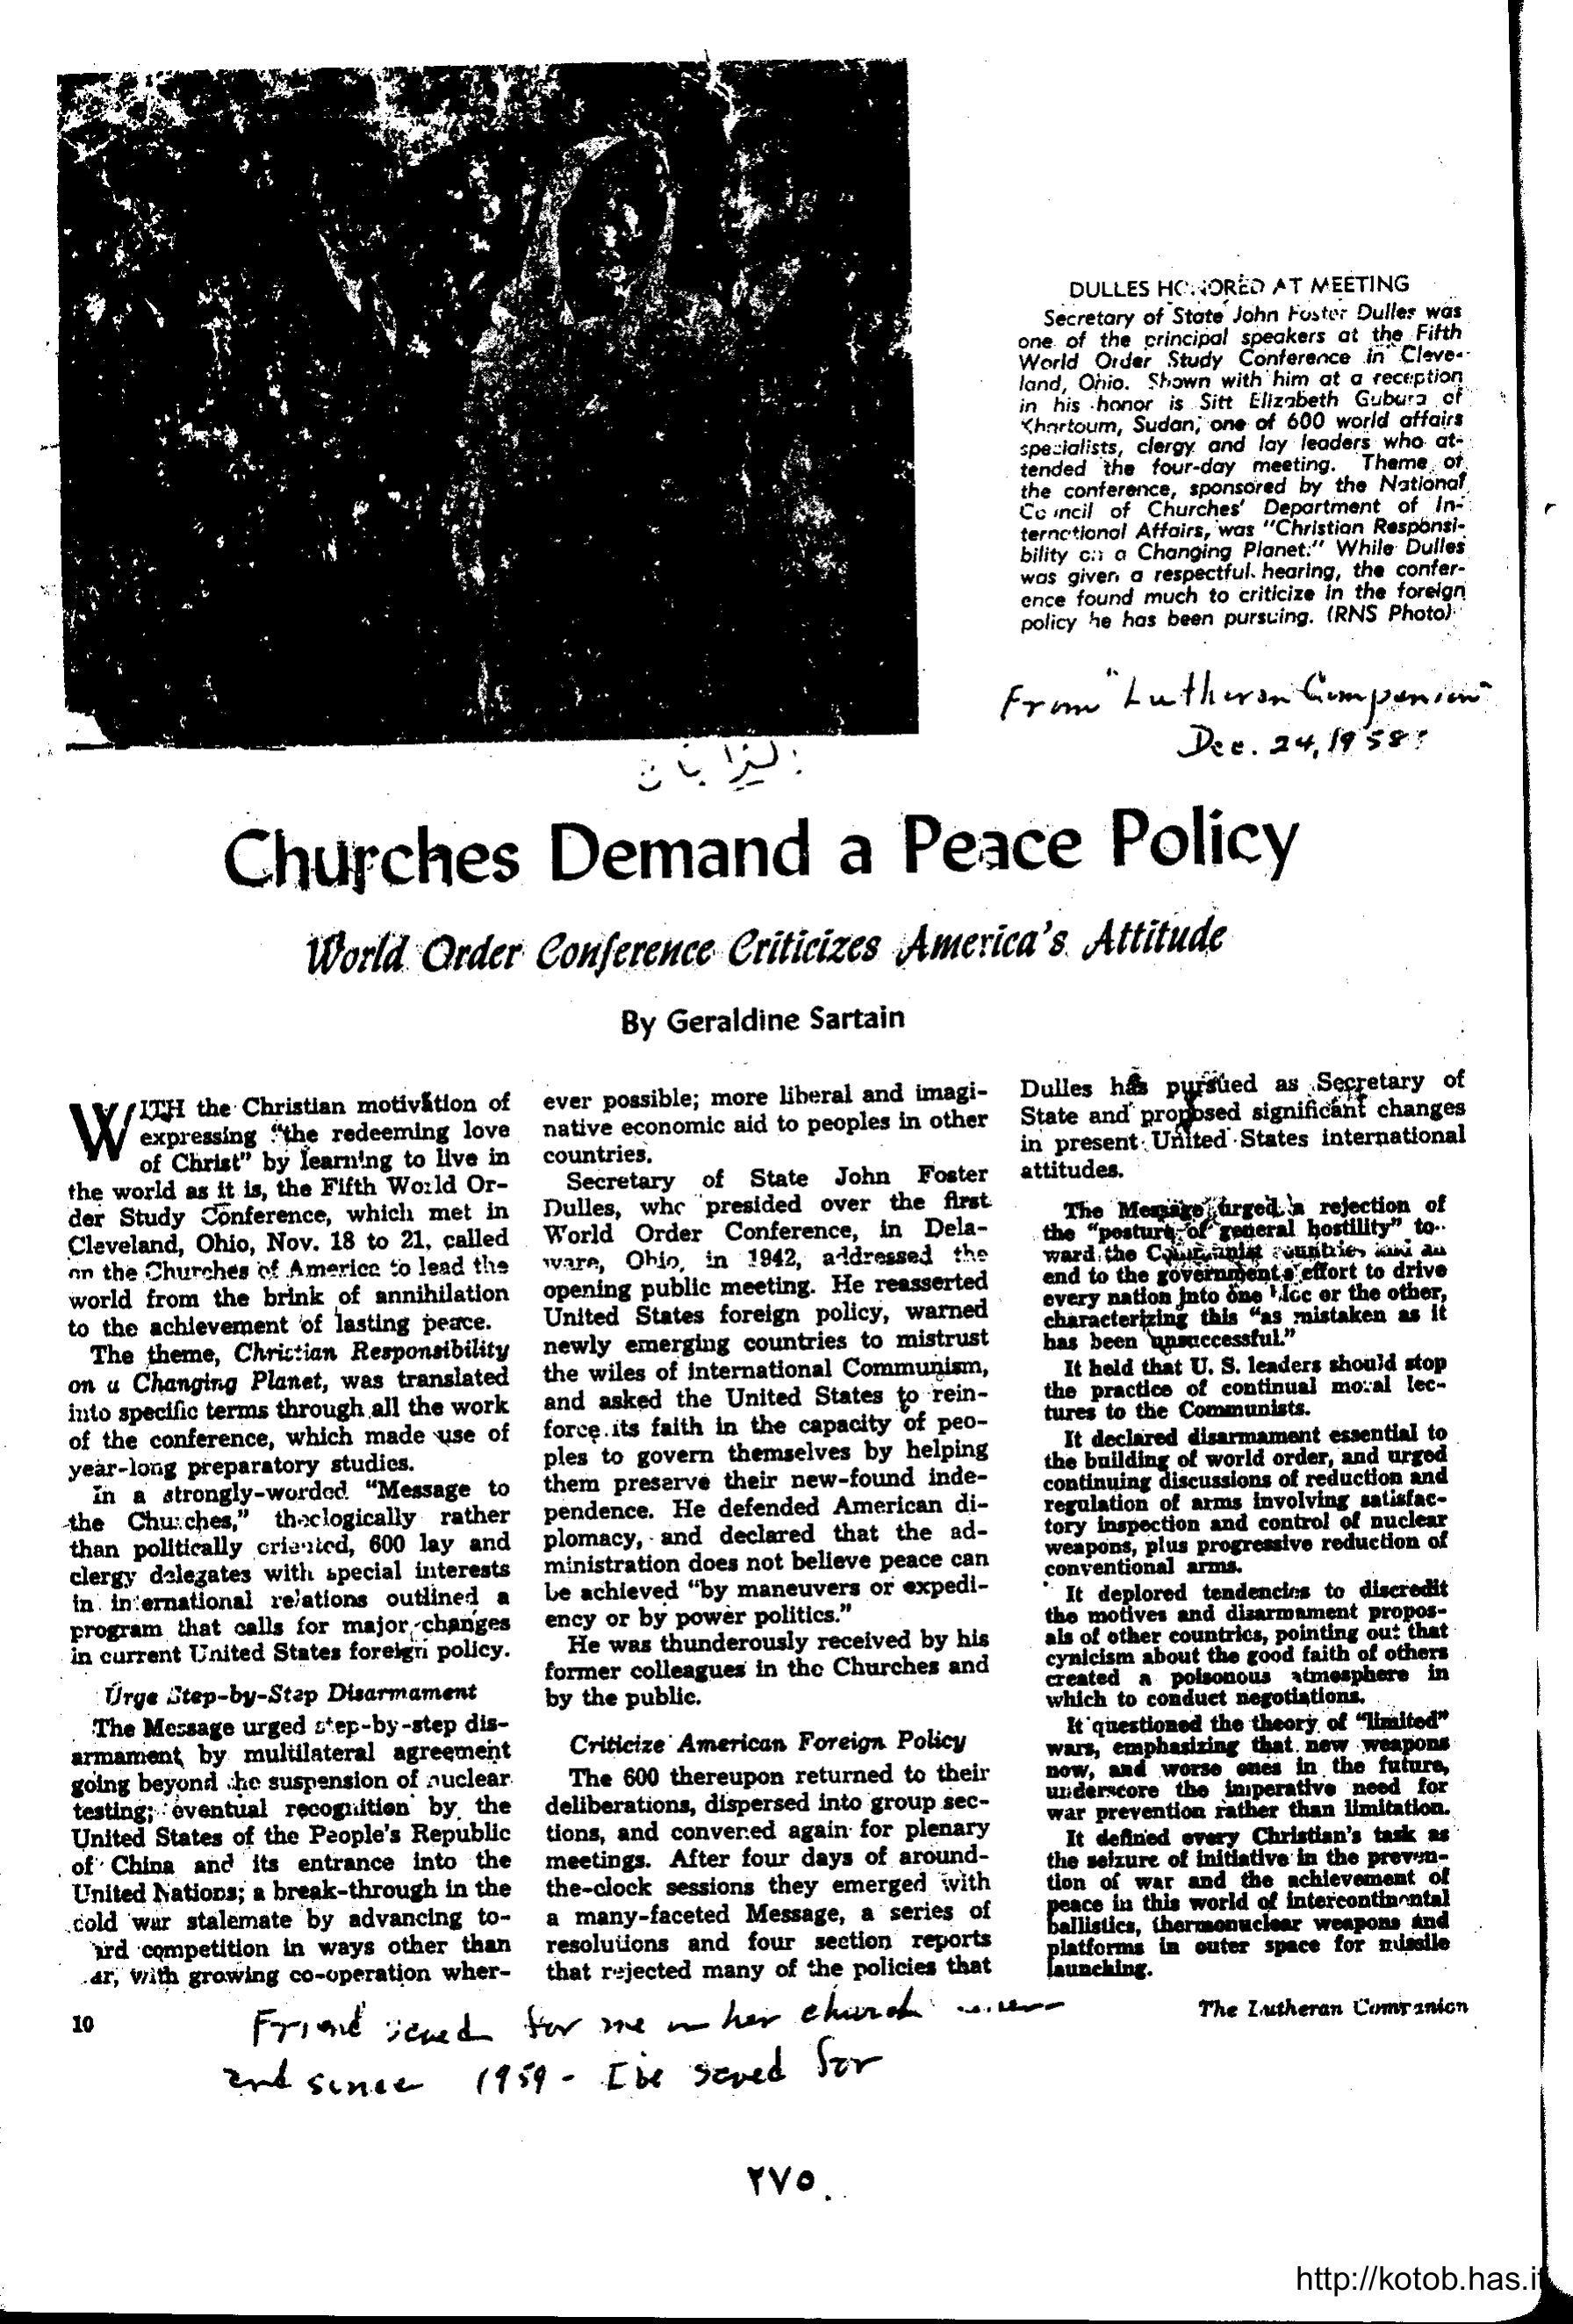 DULLES HONORED AT MEETING
Secretary of State John Foster Dulles was
one of the principal speakers at the Fifth
World Order Study Conference in Cleve-
land, Ohio. Shown with him at a reception
in his honor is Sitt Elizabeth Gubura of
Khartoum, Sudan, one of 600 world affairs
specialists, clergy and lay leaders who at-
tended the four-day meeting. Theme of
the conference, sponsored by the National
Council of Churches' Department of In-
ternational Affairs, was "Christian Responsi-
bility on a Changing Planet." While Dulles
was given a respectful hearing, the confer-
ence found much to criticize in the foreign
policy he has been pursuing. (RNS Photo)
From "Lutheran Companion"
Dec. 24, 1958
Churches Demand a Peace Policy
World Order Conference Criticizes America's Attitude
By Geraldine Sartain
WITH the Christian motivation of
expressing "the redeeming love
of Christ" by learning to live in
the world as it is, the Fifth World Or-
der Study Conference, which met in
Cleveland, Ohio, Nov. 18 to 21, called
on the Churches of America to lead the
world from the brink of annihilation
to the achievement of lasting peace.
The theme, Christian Responsibility
on a Changing Planet, was translated
into specific terms through all the work
of the conference, which made use of
year-long preparatory studies.
In a strongly-worded "Message to
the Churches," theologically rather
than politically oriented, 600 lay and
clergy delegates with special interests
in international relations outlined a
program that calls for major changes
in current United States foreign policy.
Urge Step-by-Step Disarmament
The Message urged step-by-step dis-
armament by multilateral agreement
going beyond the suspension of nuclear
testing; eventual recognition by the
United States of the People's Republic
of China and its entrance into the
United Nations; a break-through in the
cold war stalemate by advancing to-
ward competition in ways other than
war, with growing co-operation wher-
ever possible; more liberal and imagi-
native economic aid to peoples in other
countries.
Secretary of State John Foster
Dulles, who presided over the first
World Order Conference, in Dela-
ware, Ohio, in 1942, addressed the
opening public meeting. He reasserted
United States foreign policy, warned
newly emerging countries to mistrust
the wiles of international Communism,
and asked the United States to rein-
force its faith in the capacity of peo-
ples to govern themselves by helping
them preserve their new-found inde-
pendence. He defended American di-
plomacy, and declared that the ad-
ministration does not believe peace can
be achieved "by maneuvers or expedi-
ency or by power politics."
He was thunderously received by his
former colleagues in the Churches and
by the public.
Criticize American Foreign Policy
The 600 thereupon returned to their
deliberations, dispersed into group sec-
tions, and convened again for plenary
meetings. After four days of around-
the-clock sessions they emerged with
a many-faceted Message, a series of
resolutions and four section reports
that rejected many of the policies that
Dulles has pursued as Secretary of
State and proposed significant changes
in present United States international
attitudes.
The Message urged a rejection of
the "posture of general hostility" to-
ward the Communist countries and an
end to the government's effort to drive
every nation into one bloc or the other,
characterizing this "as mistaken as it
has been unsuccessful."
It held that U. S. leaders should stop
the practice of continual moral lec-
tures to the Communists.
It declared disarmament essential to
the building of world order, and urged
continuing discussions of reduction and
regulation of arms involving satisfac-
tory inspection and control of nuclear
weapons, plus progressive reduction of
conventional arms.
It deplored tendencies to discredit
the motives and disarmament propos-
als of other countries, pointing out that
cynicism about the good faith of others
created a poisonous atmosphere in
which to conduct negotiations.
It questioned the theory of "limited"
wars, emphasizing that new weapons
now, and worse ones in the future,
underscore the imperative need for
war prevention rather than limitation.
It defined every Christian's task as
the seizure of initiative in the preven-
tion of war and the achievement of
peace in this world of intercontinental
ballistics, thermonuclear weapons and
platforms in outer space for missile
launching.
10
The Lutheran Companion
Friend saved for me in her church
and since 1959 - I've saved for
٢٧٥
http://kotob.has.it